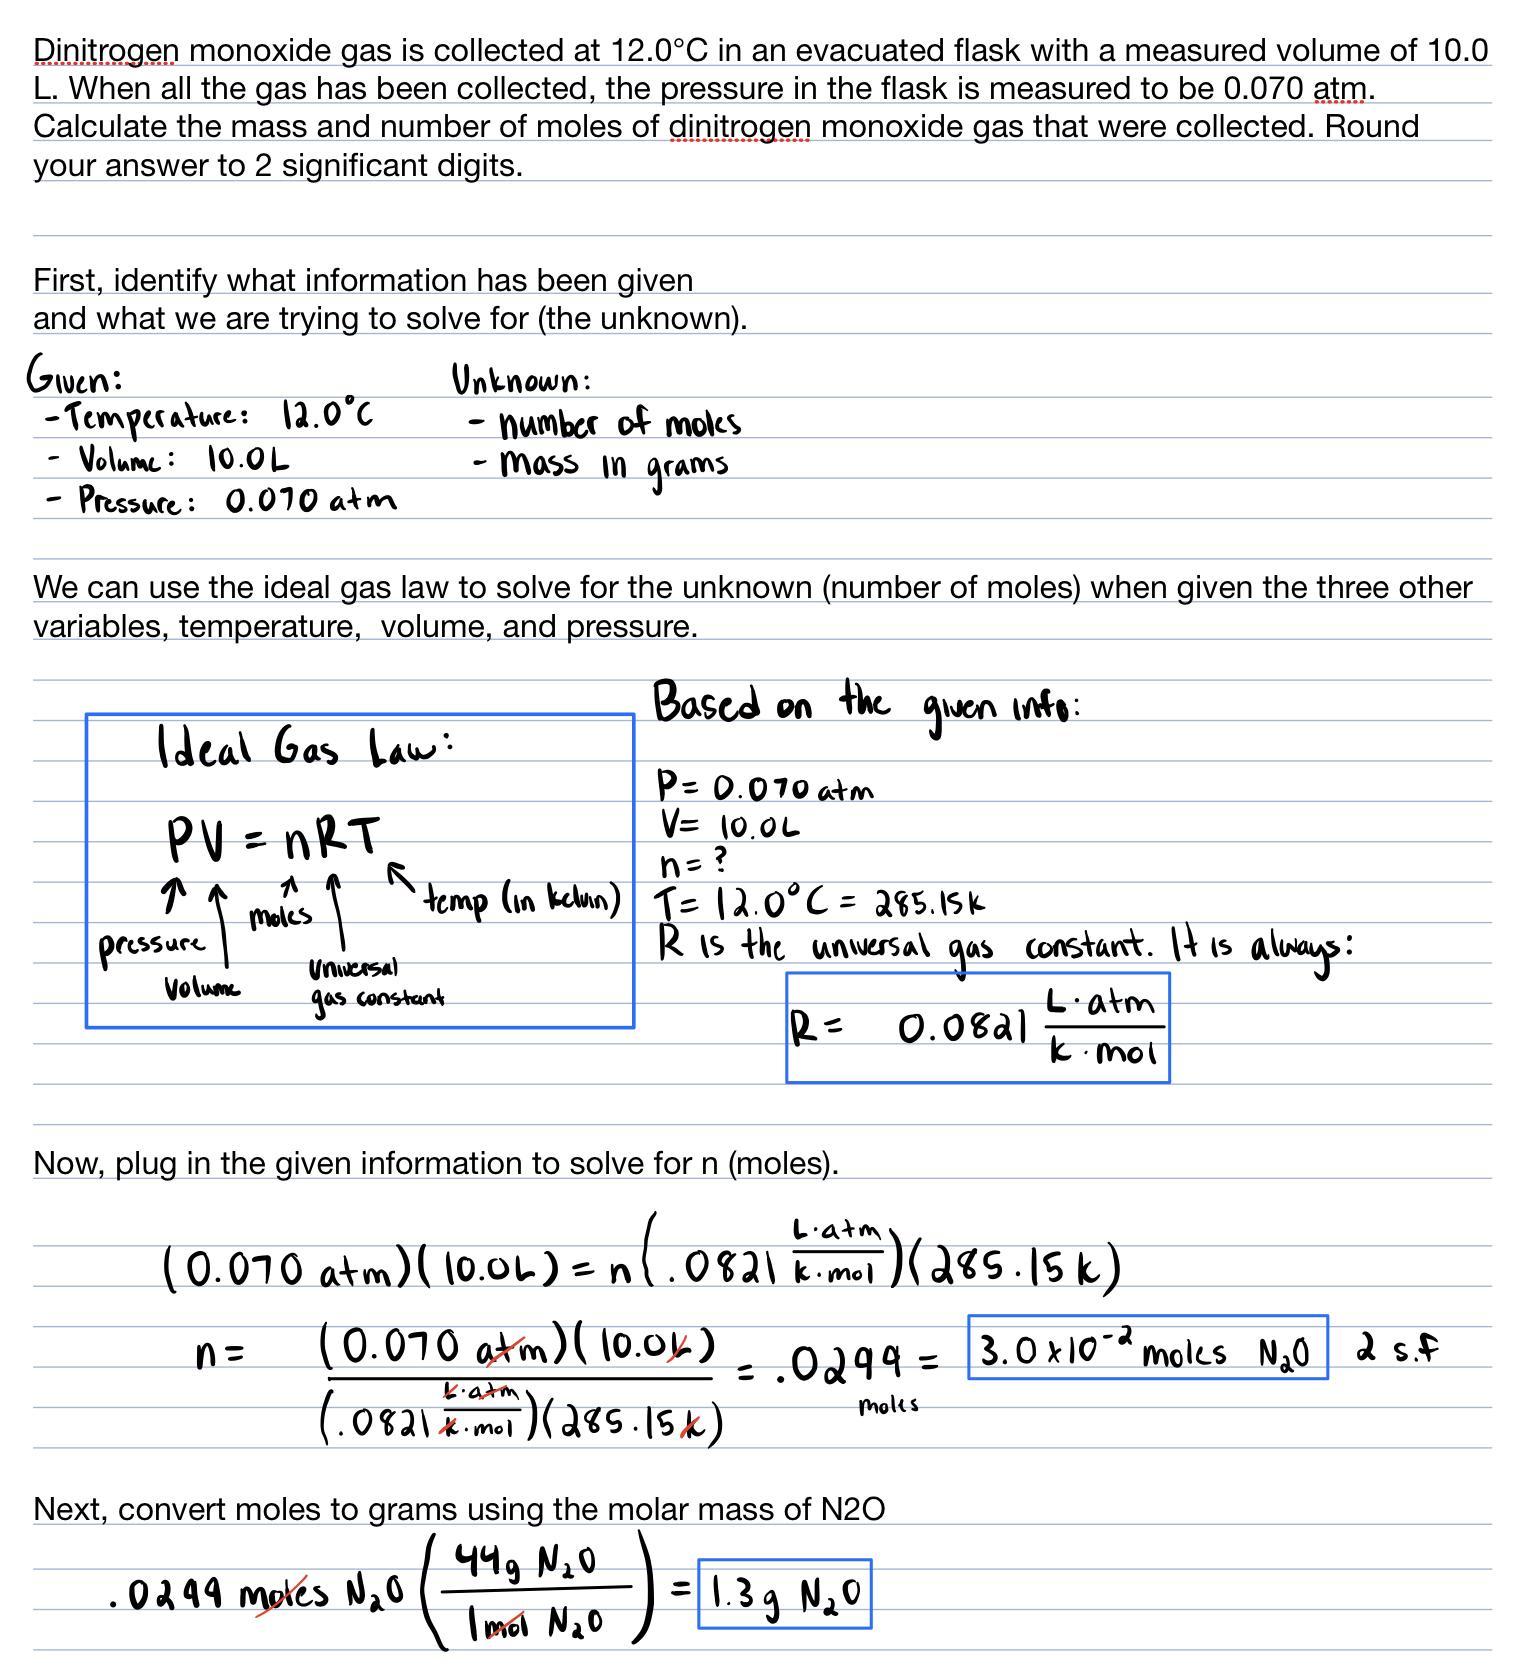 Dinitrogen monoxide gas is collected at 12.0°C in an evacuated flask with a measured volume of 10.0
L. When all the gas has been collected, the pressure in the flask is measured to be 0.070 atm.
Calculate the mass and number of moles of dinitrogen monoxide gas that were collected. Round
your answer to 2 significant digits.
First, identify what information has been given
and what we are trying to solve for (the unknown).
Given:
- Temperature: 12.0°C
- Volume: 10.0L
- Pressure: 0.070 atm
Unknown:
- number of moles
- mass in grams
We can use the ideal gas law to solve for the unknown (number of moles) when given the three other
variables, temperature, volume, and pressure.
Ideal Gas Law:
PV = nRT
pressure
Volume
moles
Universal
gas constant
temp (in kelvin)
Based on the given info:
P= 0.070 atm
V= 10.0L
n= ?
T= 12.0°C = 285.15k
R is the universal gas constant. It is always:
R= 0.0821 L·atm / k·mol
Now, plug in the given information to solve for n (moles).
(0.070 atm)(10.0L) = n(.0821 L·atm / k·mol)(285.15k)
n= (0.070 atm)(10.0L) / (.0821 L·atm / k·mol)(285.15k) = .0299 moles = 3.0x10⁻² moles N₂O 2 s.f
Next, convert moles to grams using the molar mass of N2O
.0299 moles N₂O (44g N₂O / 1mol N₂O) = 1.3g N₂O